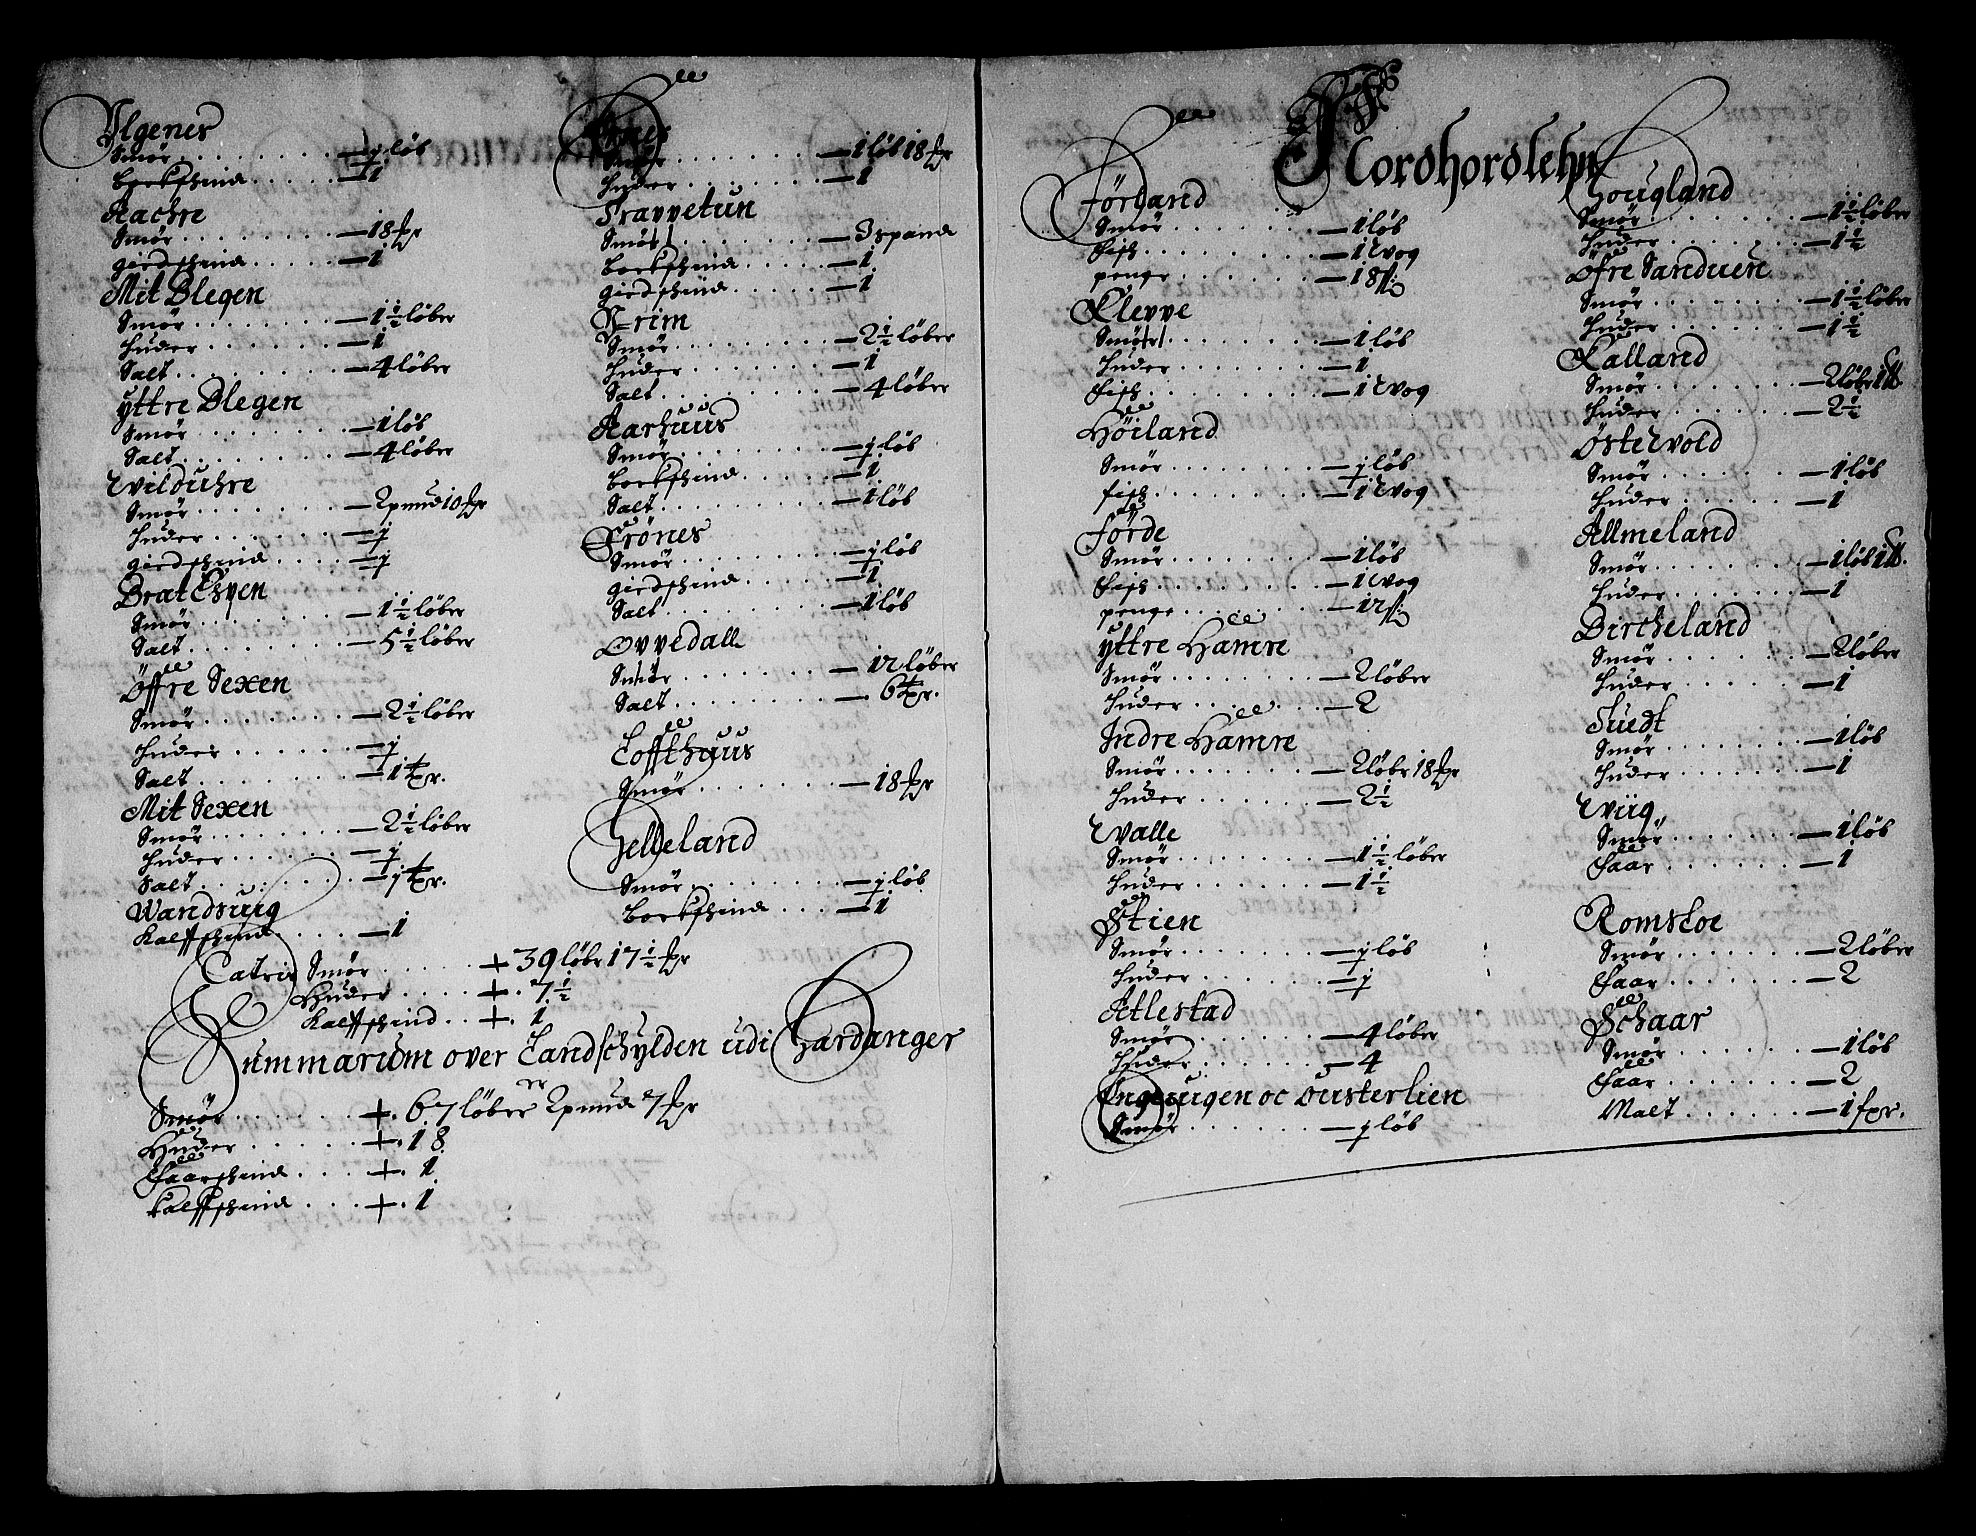 Ilgenes
Smør . . . . . . . — j løb
bockschind . . . . . — 1
Aachre
Smør . . . . . . . — 18 pr
giedschind . . . . . — 1
Mit Blegen
Smør . . . . . . . — 1½ løber
huder . . . . . . . — 1
Salt . . . . . . . — 4 løber
yttre Blegen
Smør . . . . . . . — 1 løb
Salt . . . . . . . — 4 løber
Evilduhre
Smør . . . . . . . — 2 pund 10 pr
huder . . . . . . — j
giedschind . . . . . — j
Brat Espen
Smør . . . . . . . — 1½ løber
Salt . . . . . . . — 5½ løber
Öffre Sexen
Smør . . . . . . . — 2½ løber
huder . . . . . . — j
Salt . . . . . . . — 1 tr.
Mit Sexen
Smør . . . . . . . — 2½ løber
huder . . . . . . — j
Salt . . . . . . . — j tr.
Wandsuiig
kalfschind . . . . — 1
Smør . . . . . . . — 1 løb 18 pr
huder . . . . . . . — 1
Trappetun
Smør . . . . . . . — 3 spand
bockschind . . . . . — 1
giedschind . . . . . — 1
Nrim
Smør . . . . . . . — 2½ løber
huder . . . . . . . — 1
Salt . . . . . . . — 4 løber
Aarhuus
Smør . . . . . . . — j løb
bockschind . . . . . — 1
Salt . . . . . . . — 1 løb
Frönes
Smør . . . . . . . — j løb
giedschind . . . . . — 1
Salt . . . . . . . — 1 løb
Oppedall
Smør . . . . . . . — 12 løber
Salt . . . . . . . — 6 tr.
Loffthuus
Smør . . . . . . . — 18 pr
Helleland
Smør . . . . . . . — j løb
bockschind . . . — 1
Latris Smør . . . . . + 39 løbr 17½ pr
Huder . . . . + . 7½
kalfschind . . + . 1
Summarium over Landschylden udi Hardanger
Smør . . . . . . +. 67 løber 2 pund 7 pr
Huder . . . . . +. 18
Faarschind . . . . +. 1
kalfschind . . . . +. 1
Nordhordlehn
Förland
Smør . . . . . . . — 1 løb
Fisch . . . . . . . — 1 Evog
penge . . . . . . . — 18 ß
Kleppe
Smør . . . . . . . — 1 løb
huder . . . . . . . — 1
Fisch . . . . . . . — 1 Evog
Höiland
Smør . . . . . . . — j løb
fisch . . . . . . . — 1 Evog
Förde
Smør . . . . . . . — 1 løb
Fisch . . . . . . . — 1 Evog
penge . . . . . . . — 12 ß
yttre Hamre
Smør . . . . . . . — 2 løber
huder . . . . . . . — 2
Indre Hamre
Smør . . . . . . . — 2 løbr 18 pr
huder . . . . . . . — 2½
Evalle
Smør . . . . . . . — 1½ løber
huder . . . . . . . — 1½
Stien
Smør . . . . . . . — j løb
huder . . . . . . . — j
Atlestad
Smør . . . . . . . — 4 løber
huder . . . . . . . — 4
Ingeuigen oc Ousterlien
Smør . . . . . . . — j løb
Hougland
Smør . . . . . . . — 1½ løber
huder . . . . . . . — 1½
Öfre Sanduen
Smør . . . . . . . — 1½ løber
huder . . . . . . . — 1½
Kalland
Smør . . . . . . . — 2 løbr
huder . . . . . . . — 2½
Östervold
Smør . . . . . . . — 1 løb
huder . . . . . . . — 1
Allmeland
Smør . . . . . . . — 1 løb
huder . . . . . . . — 1
Bircheland
Smør . . . . . . . — 2 løber
huder . . . . . . . — 1
Tuedt
Smør . . . . . . . — 1 løb
huder . . . . . . . — 1
Eviig
Smør . . . . . . . — 1 løb
Faar . . . . . . . — 1
Romsloe
Smør . . . . . . . — 2 løber
Faar . . . . . . . — 2
Schaar
Smør . . . . . . . — 1 løb
Faar . . . . . . . — 2
Malt . . . . . . — 1 fpr.